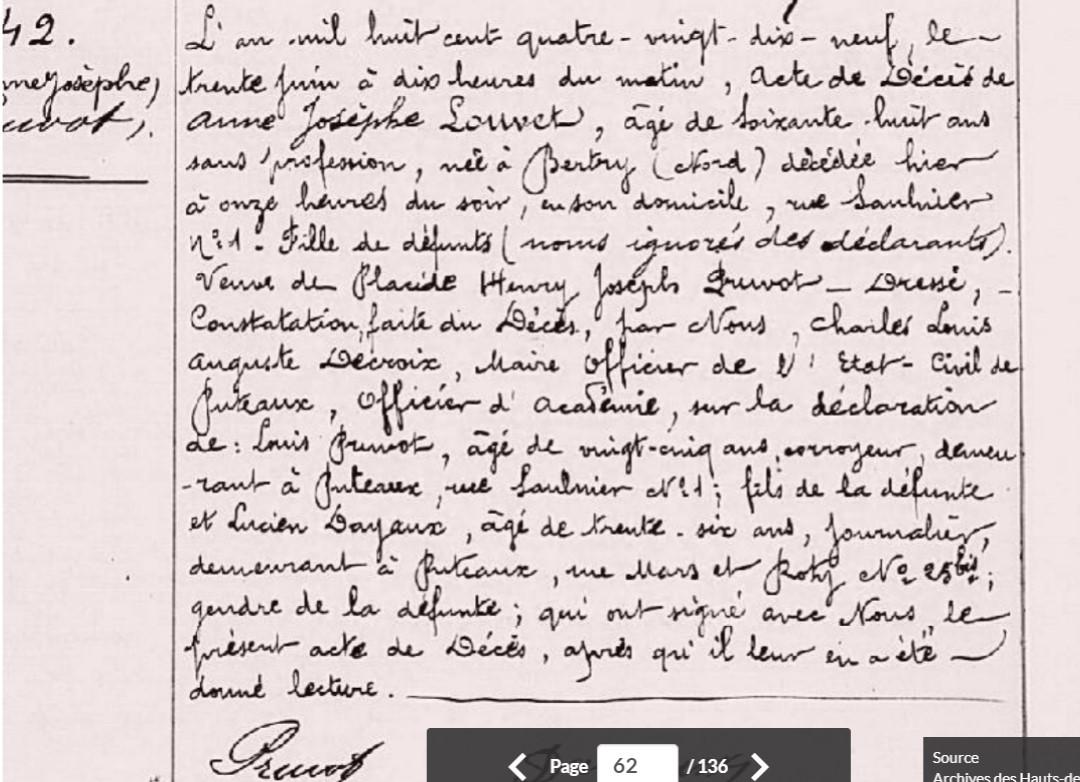 42.
nne Josèphe,
uvot,).
L'an mil huit cent quatre-vingt-dix-neuf, le
trente Juin à dix heures du matin, Acte de Décès de
Anne Josèphe Louvet, âgé de soixante-huit ans
sans profession, née à Bertry (Nord) décédée hier
à onze heures du soir, en son domicile, rue Saulnier
N° 1 - Fille de défunts (noms ignorés des déclarants).
Veuve de Placide Henry Joseph Pruvot - Dressé, -
Constatation faite du Décès, par Nous, Charles Louis
Auguste Décroix, Maire Officier de l'Etat-Civil de
Puteaux, Officier d'Académie, sur la déclaration
de : Louis Pruvot, âgé de vingt-cinq ans, corroyeur, demeu
-rant à Puteaux, rue Saulnier N° 1; fils de la défunte
et Lucien Dayaux, âgé de trente-six ans, Journalier,
demeurant à Puteaux, rue Mars et Roty N° 25 bis;
gendre de la défunte; qui ont signé avec Nous, le
présent acte de Décès, après qu'il leur en a été
donné lecture.
Pruvot
Page 62 / 136
Source
Archives des Hauts-de